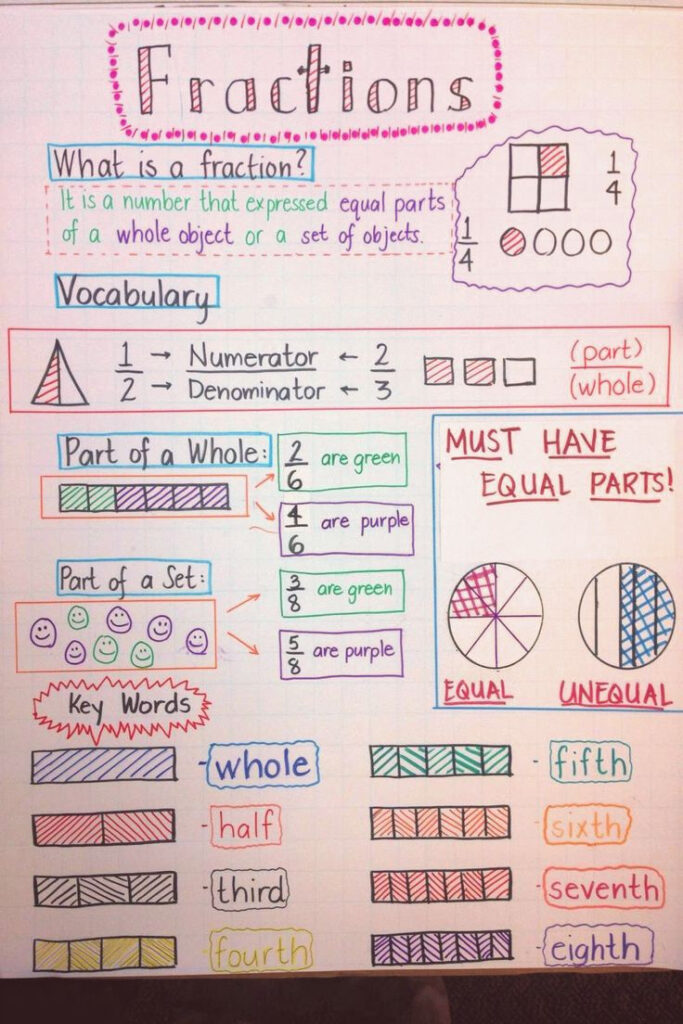 Fractions
What is a fraction?
It is a number that expressed equal parts
of a whole object or a set of objects.
1
4
1
4
Vocabulary
1 → Numerator ← 2
2 → Denominator ← 3
(part)
(whole)
Part of a Whole:
2
6 are green
4
6 are purple
MUST HAVE
EQUAL PARTS!
EQUAL
UNEQUAL
Part of a Set:
3
8 are green
5
8 are purple
Key Words
- whole
- half
- third
- fourth
- fifth
- sixth
- seventh
- eighth